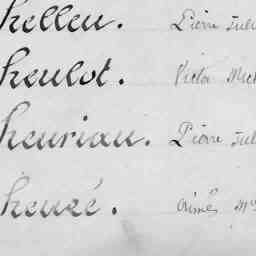 helleu. Pierre Jule
heulot. Victor Mich
heuriau. Pierre Jul
heuzé. Aimé M